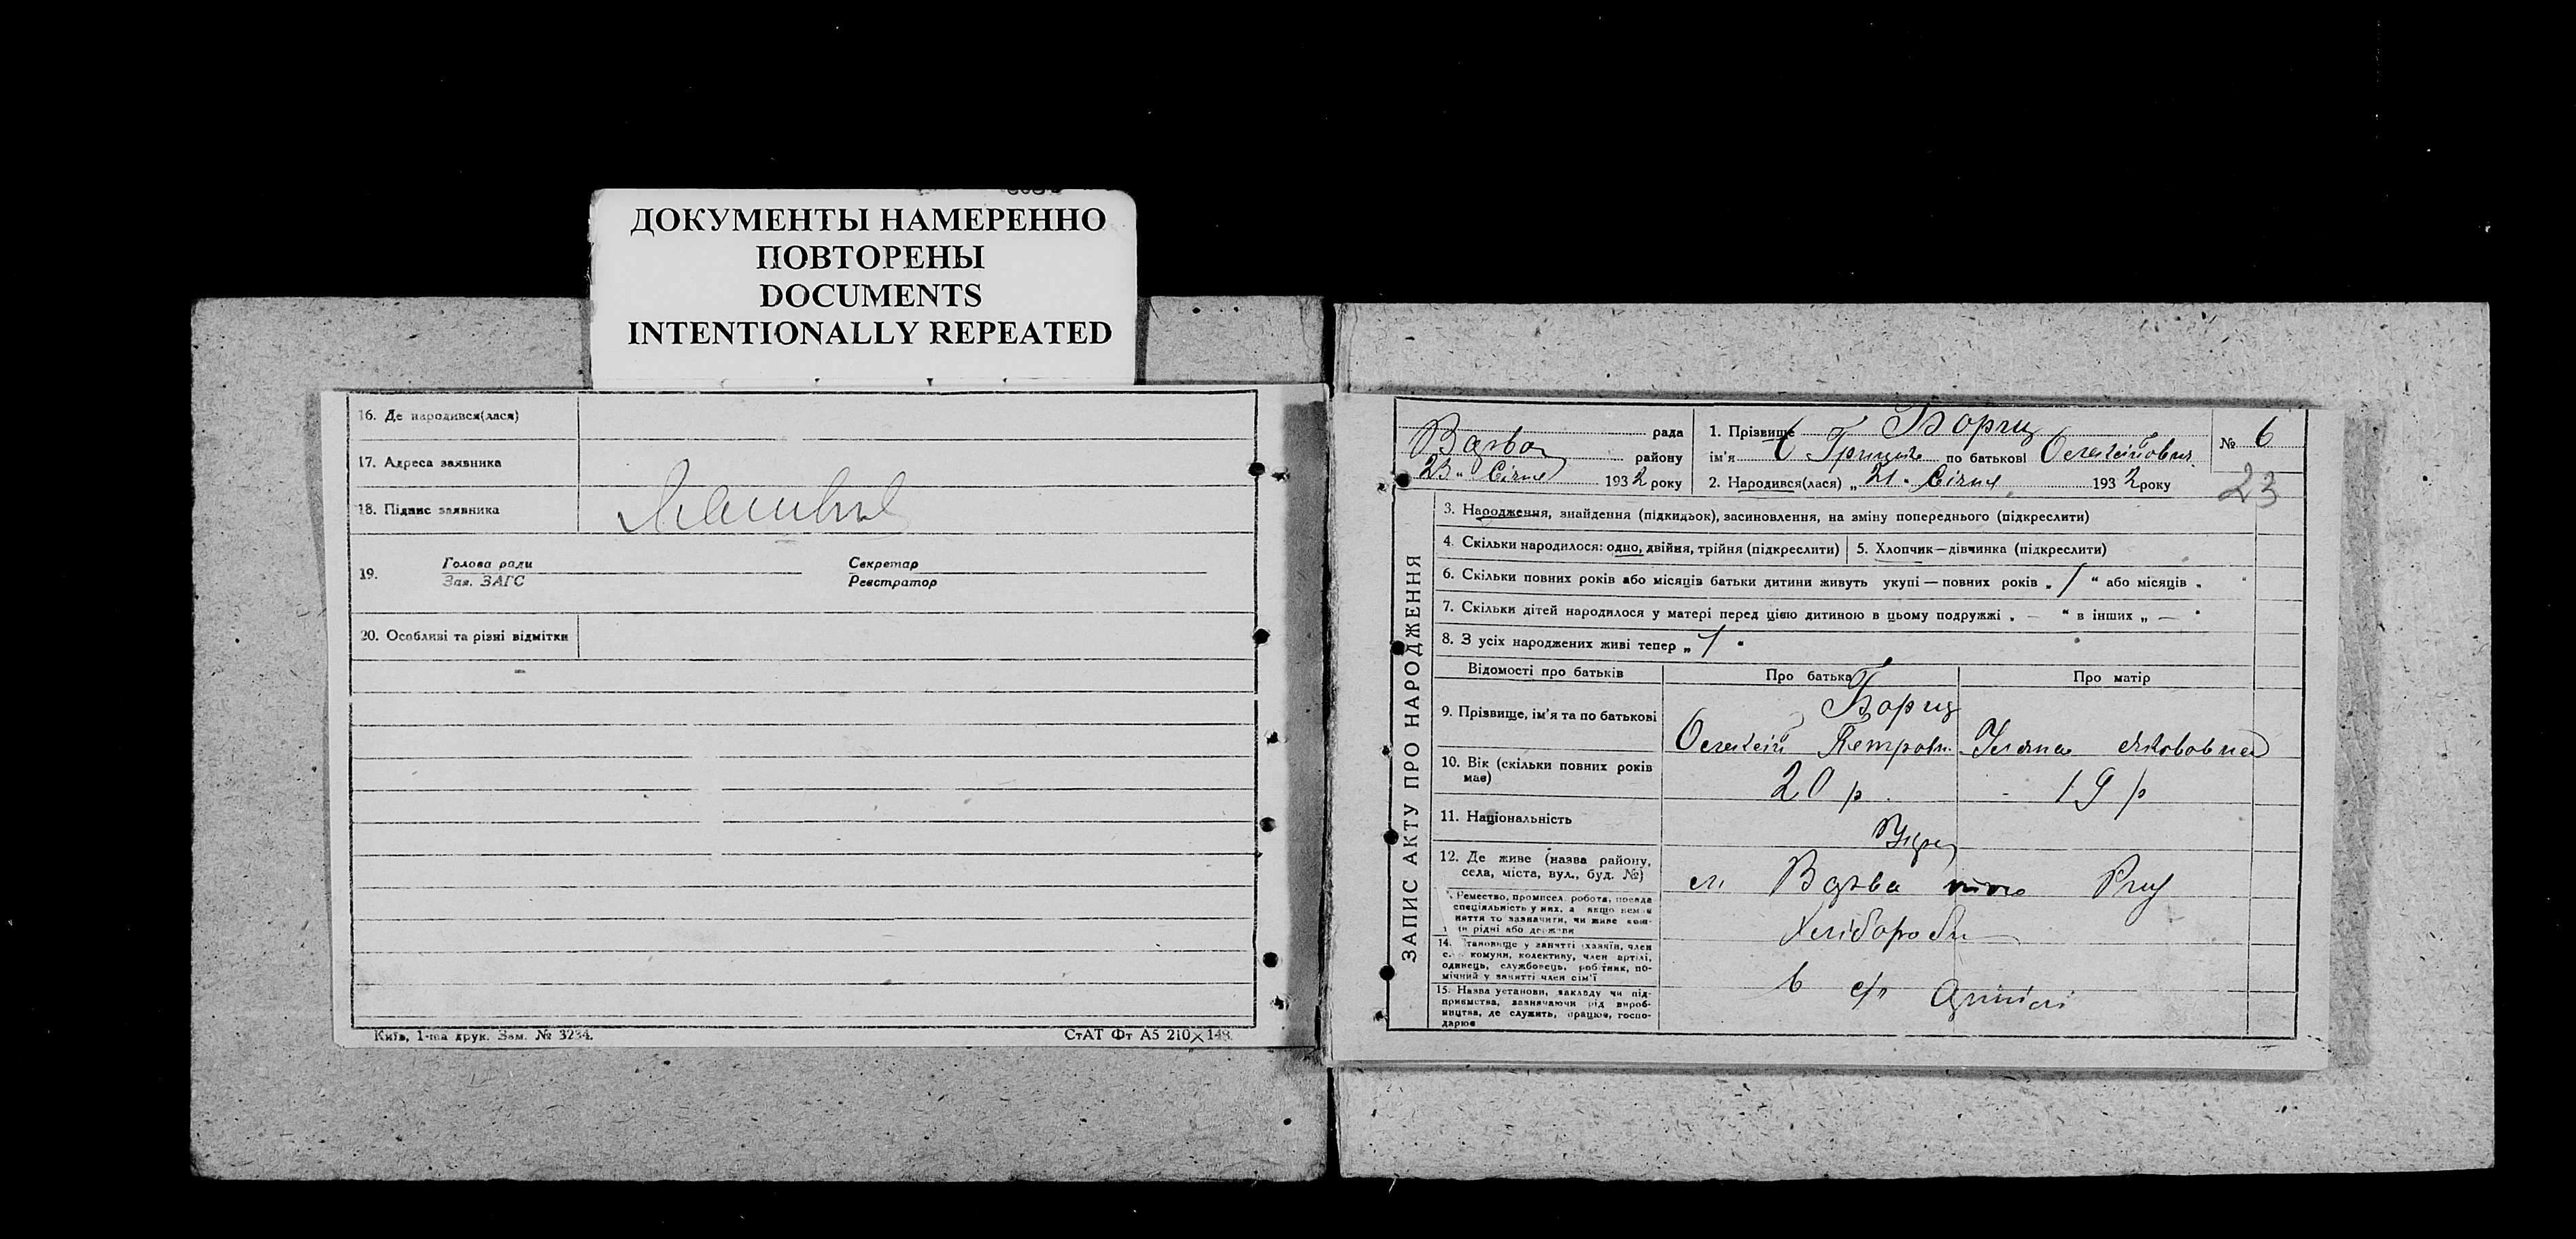 ДОКУМЕНТЫ НАМЕРЕННО
ПОВТОРЕНЫ
DOCUMENTS
INTENTIONALLY REPEATED
16. Де народився(лася)
17. Адреса заявника
18. Підпис заявника
19. Голова ради Секретар
Зав. ЗАГС Реєстратор
20. Особливі та різні відмітки
Київ, 1-ша друк. Зам. № 3234. СтАТ Фт А5 210×148
ЗАПИС АКТУ ПРО НАРОДЖЕННЯ
рада
району
23 " Січня 1932 року
1. Прізвище Борщ
ім'я Гриць по батькові Олексійович
2. Народився(лася) „ 21 " Січня 1932 року
№ 6
23
3. Народження, знайдення (підкидьок), засиновлення, на зміну попереднього (підкреслити)
4. Скільки народилося: одно, двійня, трійня (підкреслити) 5. Хлопчик—дівчинка (підкреслити)
6. Скільки повних років або місяців батьки дитини живуть укупі — повних років „ 1 " або місяців „ "
7. Скільки дітей народилося у матері перед цією дитиною в цьому подружжі „ — " в інших „ — "
8. З усіх народжених живі тепер „ 1 "
Відомості про батьків Про батька Про матір
9. Прізвище, ім'я та по батькові Борщ
Олексій Петров. Уляна Якововна
10. Вік (скільки повних років має) 20 р. 19 р
11. Національність Укр
12. Де живе (назва району, села, міста, вул., буд. №) Варва
Ремество, промисел, робота, посада спеціяльність у них, а якщо нема няття то зазначити, чи живе кош- рідні або держави Хлібороби
14. Становище у занятті (хазяїн, член с. комуни, колективу, член артілі, одинець, службовець, робітник, помічний у занятті член сім'ї
15. Назва установи, закладу чи підприємства, зазначаючи рід виробництва, де служить, працює, господарює в с/г Артілі